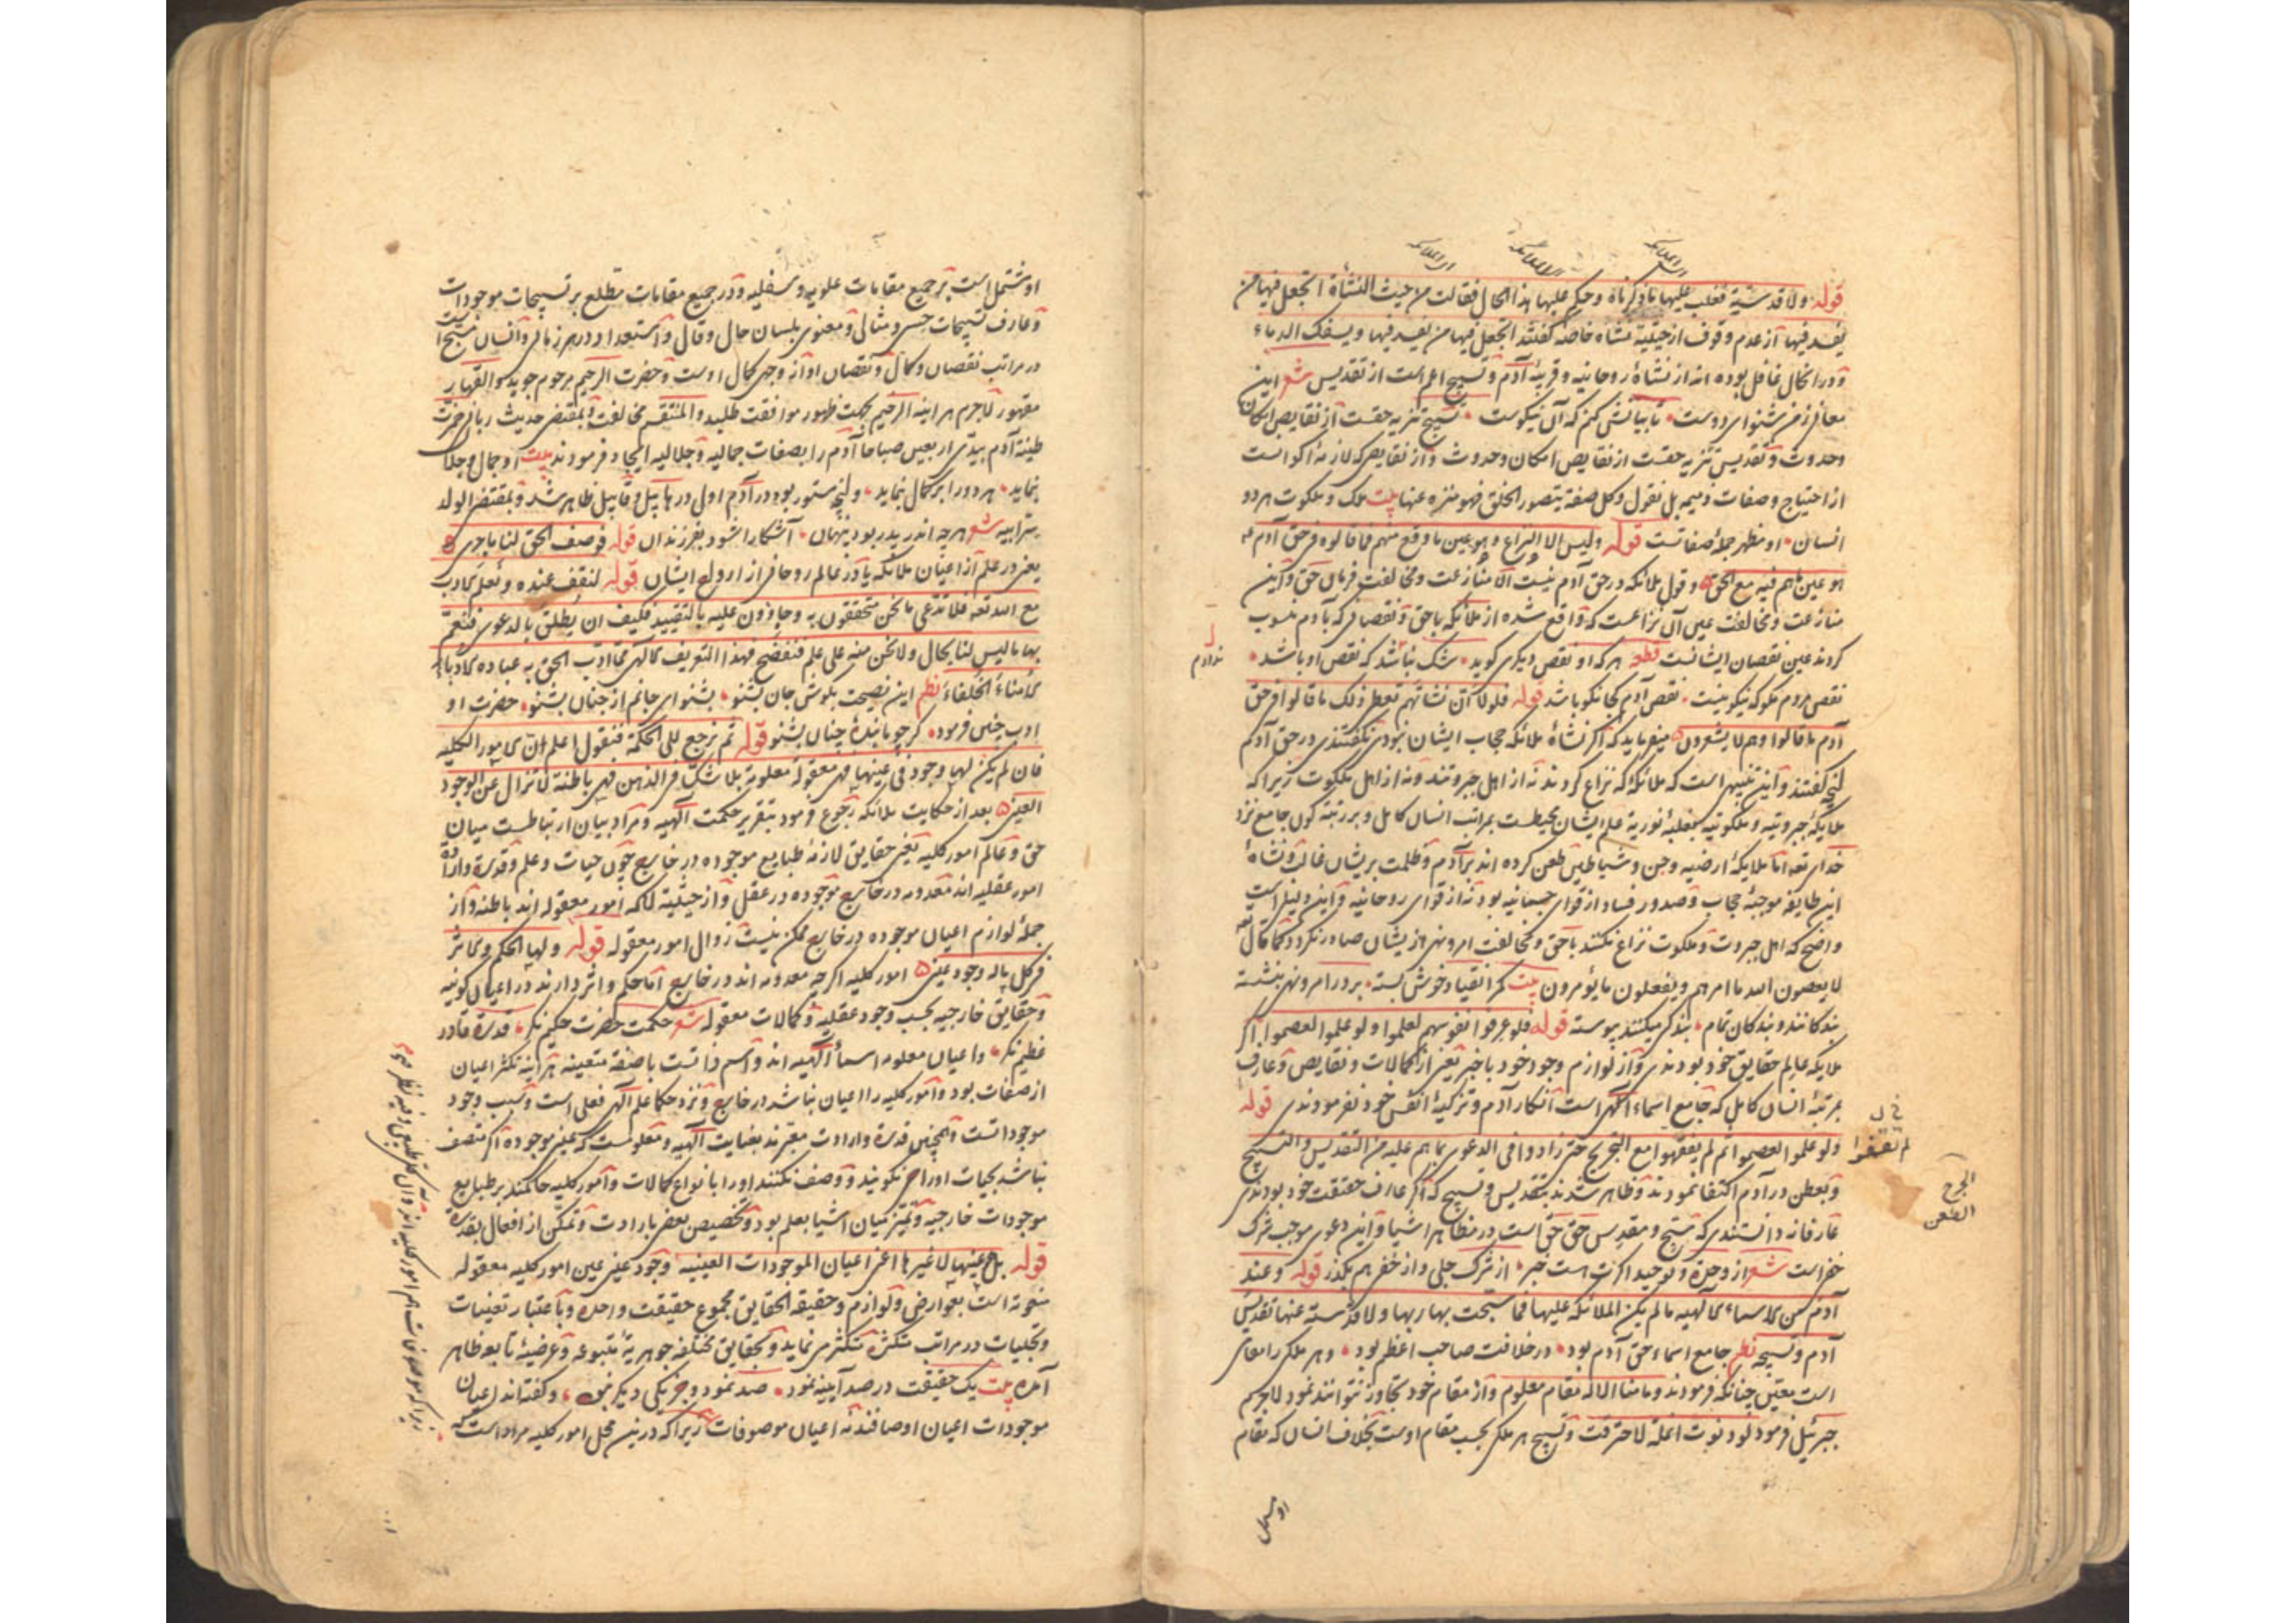 قوله ولا قدسته فغلب علیها ما ذکرناه وحکم علیها هذا الحال فقالت من حیث النشأة اتجعل فیها من
یفسد فیها از عدم وقوف از حیثیة نشاه خاصه گفتند اتجعل فیها من یفسد فیها ویسفک الدماء
ودر انحال غافل بوده اند از نشاۀ روحانیه ومرتبۀ آدم وتسبیح اعم است از تقدیس شعر این
معانی زمن شنو ای دوست تا بیانش کنم که آن نیکوست تسبیح تنزیه حقست از نقایص امکان
وحدوث وتقدیس تنزیه حقست از نقایص امکان وحدوث واز نقایص که لازمۀ اکوانست
از احتیاج وصفات ذمیمه بل نقول وکل صفة یتصور الخلق فهو منزه عنها بیت ملک وملکوت هر دو
انسان او مظهر جملۀ صفاتست قوله ولیس الا النزاع وهو عین ما وقع منهم فما قالوه فی حق آدم
هو عین ما هم فیه مع الحق وقول ملائکه در حق آدم نیست الا منازعت ومخالفت فرمان حق واین
منازعت ومخالفت عین آن نزاعست که واقع شده از ملائکه با حق ونقصانی که بآدم منسوب
کردند عین نقصان ایشانست قطعه هر که او نقص دیگری گوید شک نباشد که نقص او باشد
نقص مردم مگو که نیکو نیست نقص آدم کجا نکو باشد قوله فلولا ان نشأتهم تعطی ذلک ما قالوا فی حق
آدم ما قالوا وهم لا یشعرون میفرماید که اگر نشاۀ ملائکه حجاب ایشان نبودی نگفتندی در حق آدم
آنچه گفتند واین تنبیهی است که ملائکه که نزاع کردند نه از اهل جبروتند ونه از اهل ملکوت زیرا که
ملایکۀ جبروتیه وملکوتیه بغلبۀ نوریة علم ایشان محیطست بمراتب انسان کامل وبر رتبۀ کون جامع نزد
خدای تعه اما ملایکۀ ارضیه وجن وشیاطین طعن کرده اند بر آدم وظلمت بریشان غالب ونشاۀ
این طایفه موجبۀ حجاب وصدور فساد از قوای جسمانیه بود نه از قوای روحانیه واین دلیل است
واضح که اهل جبروت وملکوت نزاع نکنند با حق ومخالفت امر ونهی از یشان صادر نگردد کما قال تعه
لا یعصون الله ما امرهم ویفعلون ما یؤمرون بیت کمر انقیاد خوش بسته بر در امر ونهی بنشسته
بندگانند وبندگان تمام بندگی میکنند پیوسته قوله فلو عرفوا نفوسهم لعلموا ولو علموا لعصموا اگر
ملایکه عالم حقایق خود بودندی واز لوازم وجود خود با خبر یعنی از کمالات ونقایص وعارف
بمرتبۀ انسان کامل که جامع اسماء الهی است انکار آدم وتزکیۀ انفس خود نفرمودندی قوله
ولو علموا لعصموا ثم لم یقفوا مع التجریح حتی زادوا فی الدعوی بما هم علیه من التقدیس والتسبیح
وبطعن در آدم اکتفا نمودند وظاهر شدند بتقدیس وتسبیح که اگر عارف حقیقت خود بودندی
عارفانه دانستندی که مسبح ومقدس حق حق است در مظاهر اشیا واین دعوی موجب شرک
خفی است شعر از وحدة وتوحید اگرت است خبر از شرک جلی واز خفی هم بگذر قوله وعند
آدم من الاسماء الالهیه ما لم یکن الملائکه علیها فما سبحت بها ربها ولا قدسته عنها تقدیس
آدم وتسبیحه نظم جامع اسماء حق آدم بود در خلافت صاحب اعظم بود وهر ملکی را مقامی
است معین چنانکه فرمودند وما منا الا له مقام معلوم واز مقام خود تجاوز نتوانند نمود لاجرم
جبرئیل فرمود لو دنوت انملة لاحترقت وتسبیح هر ملکی بحسب مقام اوست بخلاف انسان که مقام
او مشتمل
لم یقفوا
الجرح
الطعن
او مشتمل است بر جمیع مقامات علویه وسفلیه ودر جمیع مقامات مطلع بر تسبیحات موجودات
وعارف تسبیحات حسی ومثالی ومعنوی بلسان حال وقال واستعداد در هر زمانی وانسان مسبح است
در مراتب نقصان وکمال ونقصان او از وجهی کمال اوست وحضرت الرحیم مرحوم جوید والقهار
مقهور لاجرم هر اینه الرحیم بجهت ظهور موافقت طلبد والمنتقم مخالفت وبمقتضی حدیث ربانی خمرت
طینة آدم بیدی اربعین صباحا آدم را بصفات جمالیه وجلالیه ایجاد فرمودند بیت او جمال وجلال
بنماید هر دو را بر کمال بنماید وآنچه مستور بود در آدم اول در هابیل وقابیل ظاهر شد وبمقتضی الولد
سر ابیه شعر هرچه اندر پدر بود پنهان آشکارا شود بفرزندان قوله فوصف الحق لنا ما جری
یعنی در علم از اعیان ملائکه یا در عالم روحانی از ارواح ایشان قوله لنقف عنده ونعلم الادب
مع الله تعه فلا ندعی ما نحن متحققون به وحاوون علیه بالتقیید فکیف ان یطلق بالدعوی فنعم
بها ما لیس لنا بحال ولا نحن منه علی علم فنفتضح فهذا التعریف الالهی مما ادب الحق به عباده الادباء
الامناء الخلفاء نظم این نصیحت بگوش جان بشنو بشنو ای جانم از جنان بشنو حضرت او
ادب چنین فرمود گر چو ما بندۀ چنان بشنو قوله ثم نرجع الی الحکمة فنقول اعلم ان الامور الکلیه
فان لم یکن لها وجود فی عینها فهی معقولة معلومة بلا شک فی الذهن فهی باطنة لا تزال عن الوجود
العینی بعد از حکایت ملائکه رجوع فرمود بتقریر حکمت الهیه ومراد بیان ارتباطست میان
حق وعالم امور کلیه یعنی حقایق لازمۀ طبایع موجوده در خارج چون حیات وعلم وقدرة وارادة
امور عقلیه اند معدومه در خارج موجوده در عقل واز حیثیة آنکه امور معقوله اند باطنه واز
جملۀ لوازم اعیان موجوده در خارج ممکن نیست زوال امور معقوله قوله ولها الحکم والاثر
فی کل ما له وجود عینی امور کلیه اگرچه معدومه اند در خارج اما حکم واثر دارند در اعیان کونیه
وحقایق خارجیه بحسب وجود عقلیه وکمالات معقوله شعر حکمت حضرت حکیم نگر قدرة قادر
عظیم نگر واعیان معلومه اسماء الهیه اند واسم ذاتست با صفة متعینه هر اینه تکثر اعیان
از صفات بود وامور کلیه را اعیان نباشد در خارج ونزد حکما علم الهی فعلی است وسبب وجود
موجوداتست وهمچنین قدرة وارادت معبرند بعنایت الهیه ومعلومست که عینی موجوده اگر متصف
نباشد بحیات او را حی نگویند ووصف نکنند او را بانواع کمالات وامور کلیه حاکمند بر طبایع
موجودات خارجیه وتمیز میان اشیا بعلم بود وتخصیص بعضی بارادت وتمکن از افعال بقدرة
قوله بل هی عینها لا غیرها اعنی اعیان الموجودات العینیه وجود عینی عین امور کلیه معقوله
منعوته است بعوارض ولوازم وحقیقة الحقایق مجموع حقیقت واحده وباعتبار تعینات
وتجلیات در مراتب متکثره متکثر می نماید وبحقایق مختلفه جوهریۀ متبوعه وعرضیۀ تابعه ظاهر
آمده بیت یک حقیقت در صد آینه نمود صد نمود وجز یکی دیگر نبود وگفته اند اعیان
موجودات اعیان اوصافند نه اعیان موصوفات زیرا که درین محل امور کلیه مراد است که